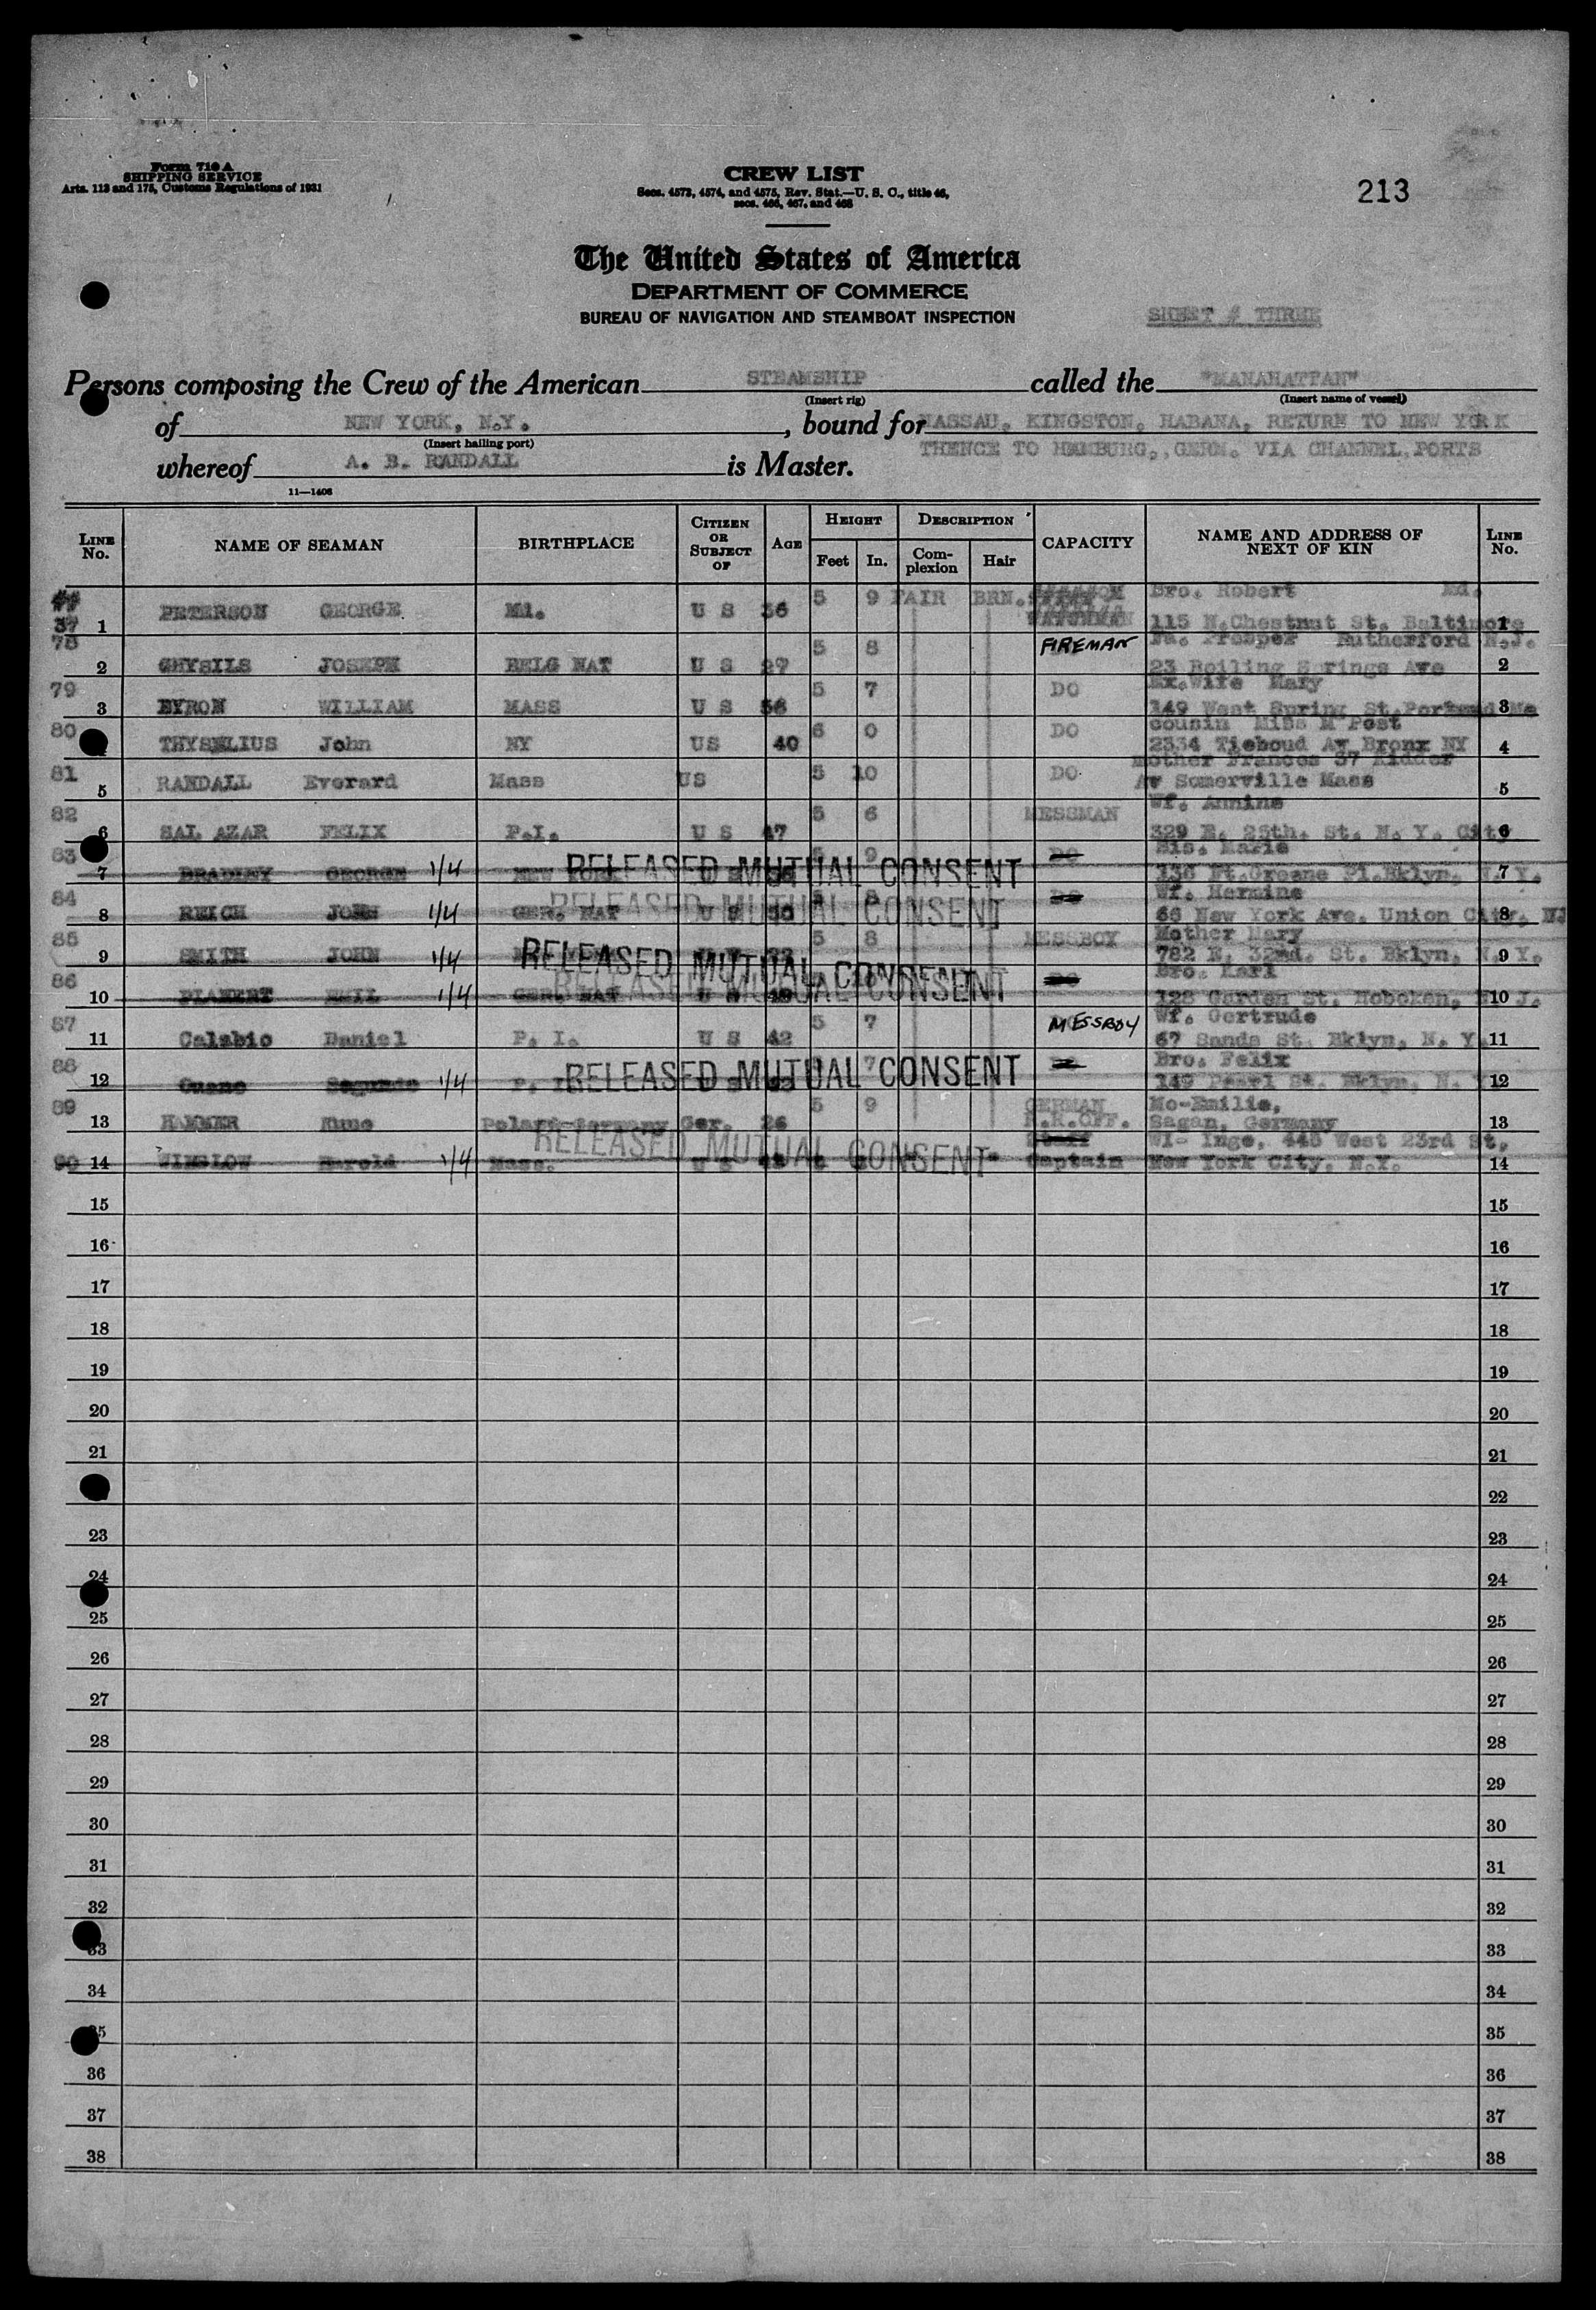 Form 710 A
SHIPPING SERVICE
Arts. 113 and 175, Customs Regulations of 1931
CREW LIST
Secs. 4573, 4574, and 4575, Rev. Stat.—U. S. C., title 46,
secs. 465, 467, and 468
213
The United States of America
DEPARTMENT OF COMMERCE
BUREAU OF NAVIGATION AND STEAMBOAT INSPECTION
SHEET # THREE
Persons composing the Crew of the American STEAMSHIP called the "MANAHATTAN"
(Insert rig) (Insert name of vessel)
of NEW YORK, N.Y. , bound for NASSAU, KINGSTON, HABANA, RETURN TO NEW YORK
(Insert hailing port)
whereof A. B. RANDALL is Master. THENCE TO HAMBURG, GERM. VIA CHANNEL PORTS
11—1406
LINE No. NAME OF SEAMAN BIRTHPLACE CITIZEN OR SUBJECT OF AGE HEIGHT Feet In. DESCRIPTION Complexion Hair CAPACITY NAME AND ADDRESS OF NEXT OF KIN LINE No.
37 1 PETERSON GEORGE Md. U S 36 5 9 FAIR BRN. WATCHMAN Bro. Robert Md. 115 N.Chestnut St. Baltimore 1
78 2 GHYSILS JOSEPH BELG NAT U S 27 5 8 FIREMAN Fa. Prosper Rutherford N.J. 23 Boiling Springs Ave 2
79 3 BYRON WILLIAM MASS U S 36 5 7 DO Ex.Wife Mary 149 West Spring St.Portland Me 3
80 THYSELIUS John NY US 40 6 0 DO cousin Miss M Post 2334 Tieboud Av Bronx NY 4
81 5 RANDALL Everard Mass US 5 10 DO mother Frances 37 Kidder Av Somerville Mass 5
82 6 SAL AZAR FELIX P.I. U S 47 5 6 MESSMAN Wf. Annine 329 E. 25th. St. N. Y. City 6
83 7 BRADLEY GEORGE 1/4 NEW YORK U S RELEASED MUTUAL CONSENT 5 9 DO Sis. Marie 136 Ft.Greene Pl.Bklyn, N. Y. 7
84 8 REICH JOHN 1/4 GER. NAT U S 30 RELEASED MUTUAL CONSENT 5 8 DO Wf. Hermine 66 New York Ave. Union City, NJ 8
85 9 SMITH JOHN 1/4 RELEASED MUTUAL CONSENT 5 8 MESSBOY Mother Mary 782 E. 32nd. St. Bklyn, N. Y. 9
86 10 PLANERT EMIL 1/4 GER. NAT U S RELEASED MUTUAL CONSENT DO Bro. Karl 128 Garden St. Hoboken, N. J. 10
87 11 Calabio Daniel P. I. U S 42 5 7 MESSBOY Wf. Gertrude 67 Sands St. Bklyn, N. Y. 11
88 12 Guano Segundo 1/4 P. I. RELEASED MUTUAL CONSENT 7 Bro. Felix 149 Pearl St. Bklyn, N. Y. 12
89 13 HAMMER Kuno Polars-Germany Ger. 26 5 9 GERMAN R.R.OFF. Mo-Emilie, Sagan, Germany 13
90 14 WINSLOW Harold 1/4 Mass. U S RELEASED MUTUAL CONSENT Staff Captain Wi- Inge, 448 West 23rd St, New York City, N.Y. 14
15 15
16 16
17 17
18 18
19 19
20 20
21 21
22
23 23
24 24
25 25
26 26
27 27
28 28
29 29
30 30
31 31
32 32
33 33
34 34
35 35
36 36
37 37
38 38